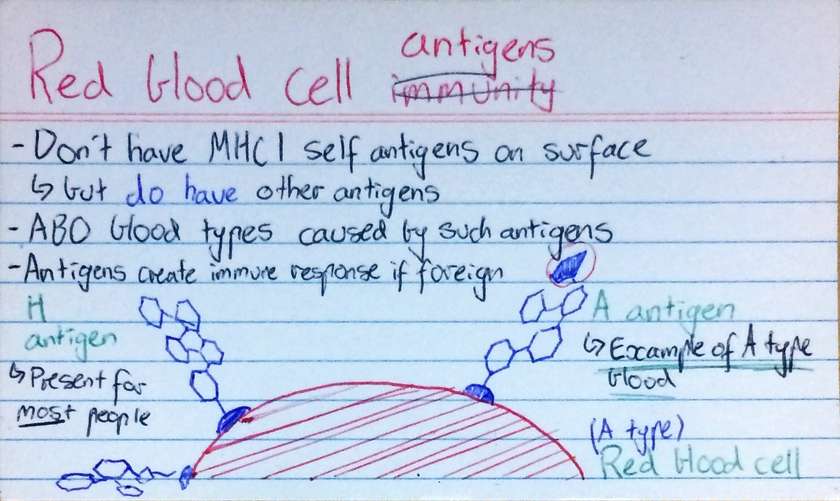 Red blood cell antigens
immunity
- Don't have MHC1 self antigens on surface
↳ but do have other antigens
- ABO blood types caused by such antigens
- Antigens create immune response if foreign
H
antigen
↳ Present for
most people
A antigen
↳ Example of A type
blood
(A type)
Red blood cell